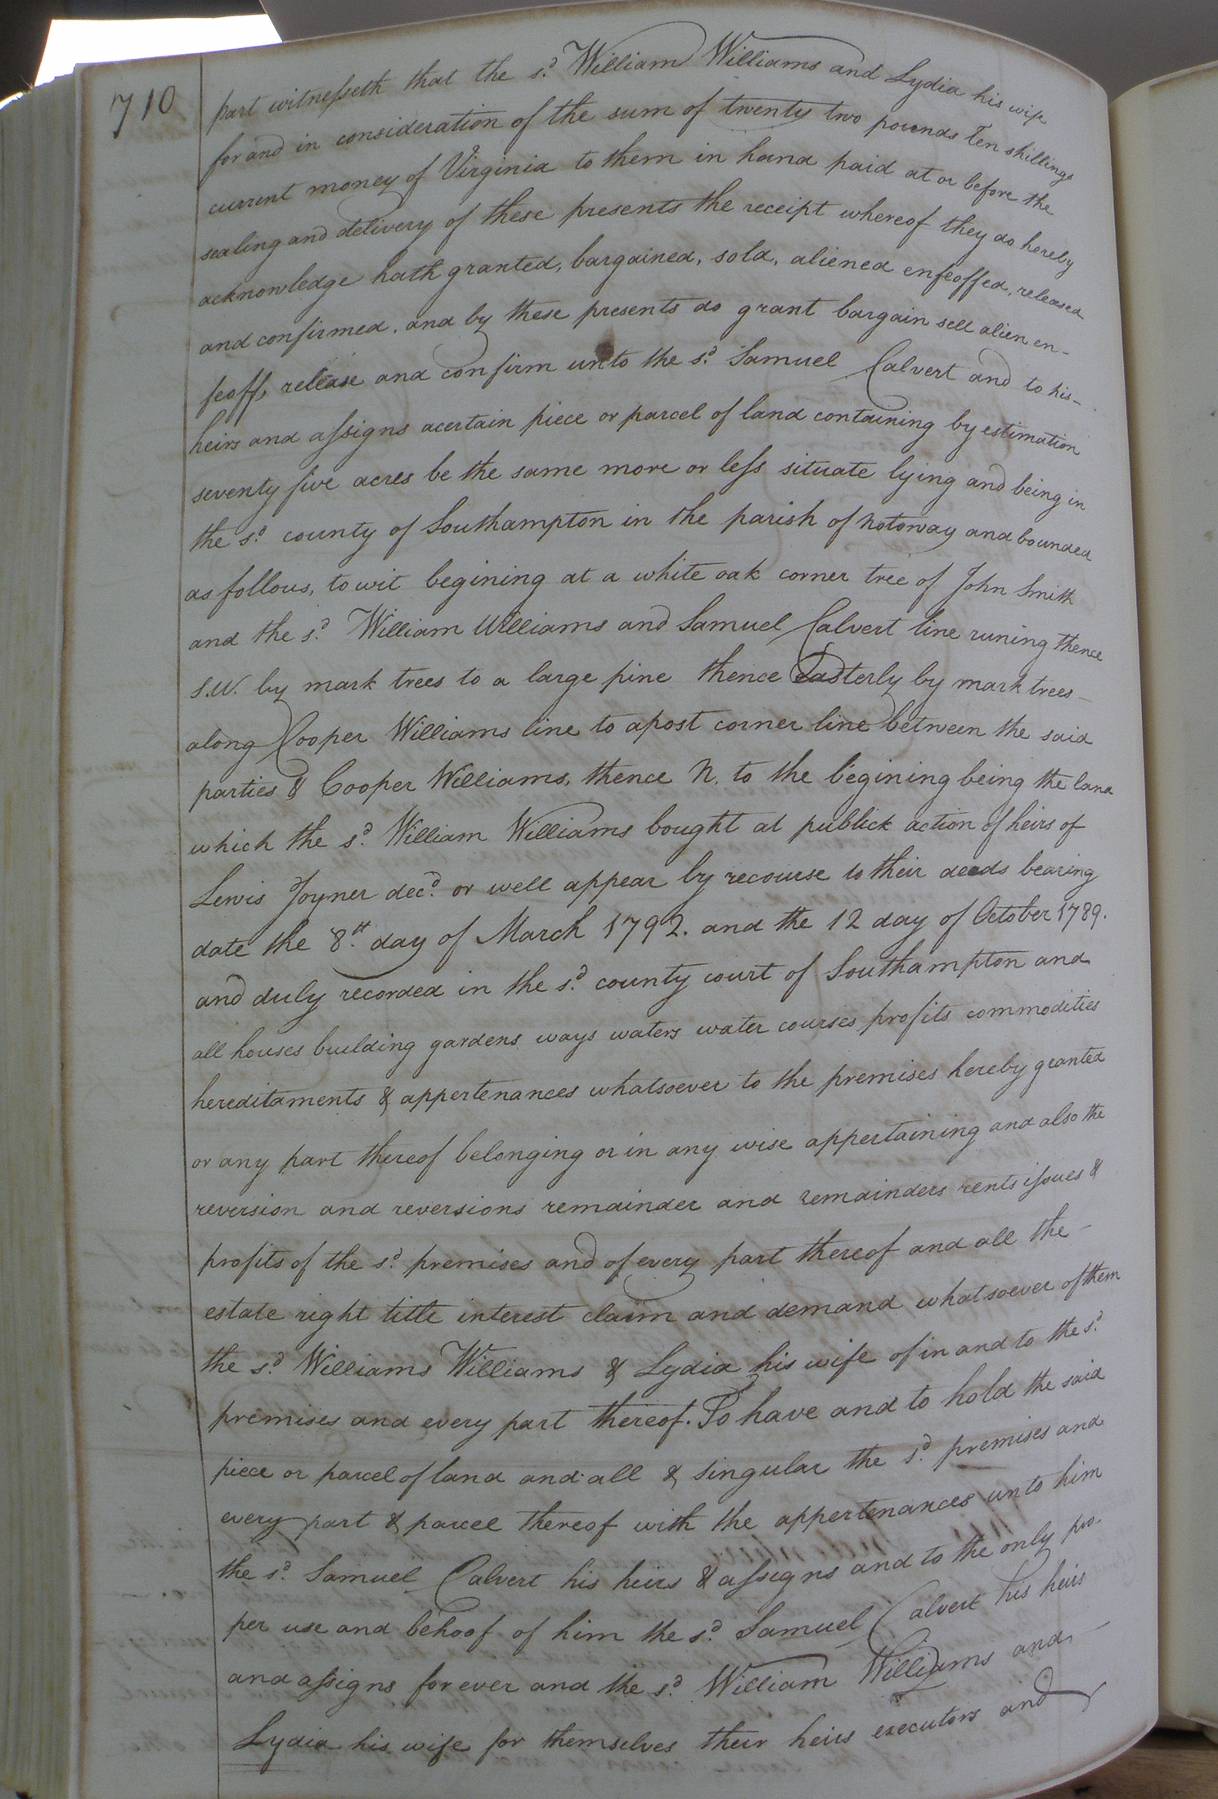 710
part witnesseth that the sd. William Williams and Lydia his wife
for and in consideration of the sum of twenty two pounds Ten shillings
current money of Virginia to them in hand paid at or before the
sealing and delivery of these presents the receipt whereof they do hereby
acknowledge hath granted, bargained, sold, aliened enfeoffed, released
and confirmed, and by these presents do grant bargain sell alien en-
feoff, release and confirm unto the sd. Samuel Calvert and to his-
heirs and assigns acertain piece or parcel of land containing by estimation
seventy five acres be the same more or less situate lying and being in
the sd. county of Southampton in the parish of Notoway and bounded
as follows, to wit begining at a white oak corner tree of John Smith
and the sd. William Williams and Samuel Calvert line runing thence
S.W. by mark trees to a large pine thence Easterly by mark trees-
along Cooper Williams line to apost corner line between the said
parties & Cooper Williams, thence N. to the begining being the land
which the sd. William Williams bought at publick action of heirs of
Lewis Joyner decd. or well appear by recourse to their deeds bearing
date the 8th. day of March 1792. and the 12 day of October 1789.
and duly recorded in the sd. county court of Southampton and
all houses building gardens ways waters water courses profits commodities
hereditaments & appertenances whatsoever to the premises hereby granted
or any part thereof belonging or in any wise appertaining and also the
reversion and reversions remainder and remainders rents issues &
profits of the sd. premises and of every part thereof and all the-
estate right title interest claim and demand whatsoever of them
the sd. Williams Williams & Lydia his wife of in and to the sd.
premises and every part thereof. To have and to hold the said
piece or parcel of land and all & singular the sd. premises and
every part & parcel thereof with the appertenances unto him
the sd. Samuel Calvert his heirs & assigns and to the only pro-
per use and behoof of him the sd. Samuel Calvert his heirs
and assigns for ever and the sd. William Williams and-
Lydia his wife for themselves their heirs executors and